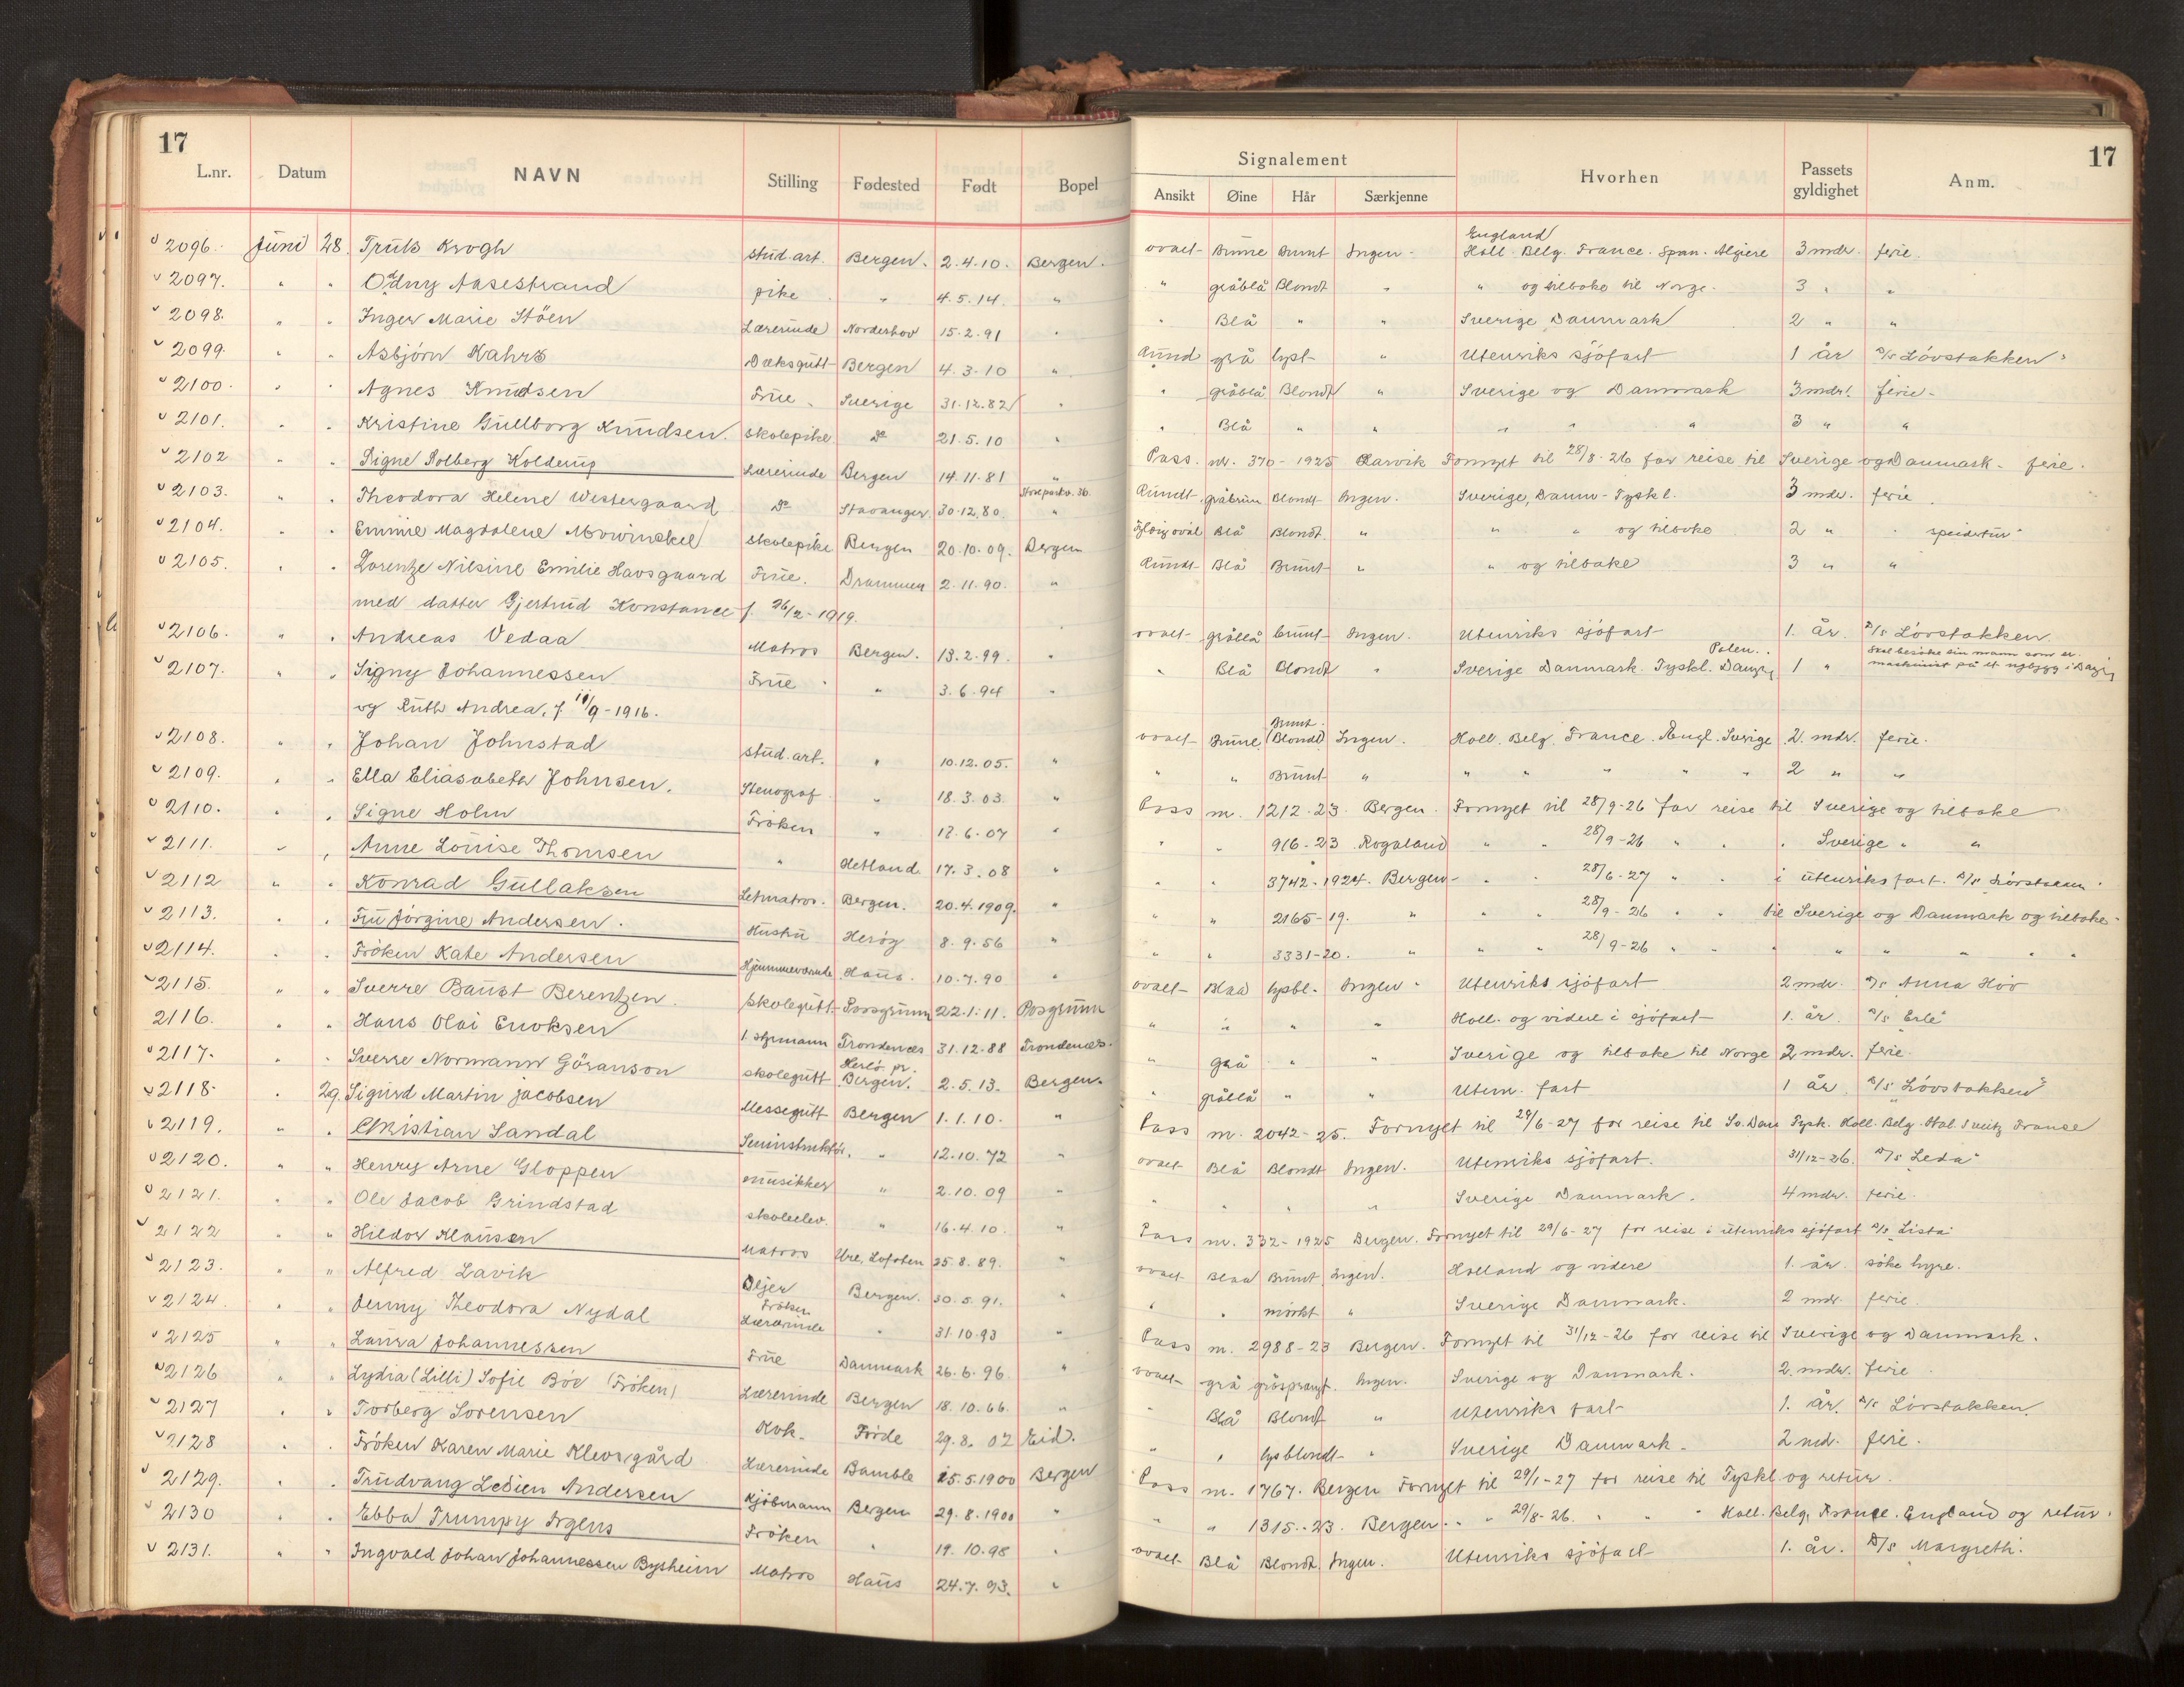 17
L.nr. Datum NAVN Stilling Fødested Født Bopel
Signalement
Ansikt Øine Hår Særkjenne Hvorhen Passets gyldighet Anm.
17
England
2096. Juni 28. Truls Krogh stud. art. Bergen. 2.4.10. Bergen. ovalt Brune Brunt Ingen - Holl. Belg. France. Span. Algiere 3 mdr. ferie.
2097. " " Odny Aasestrand pike " 4.5.14. " " gråblå Blondt " " og tilbake til Norge. 3 " "
2098. " " Inger Marie Stöen Lærerinde Norderhov 15.2.91 " " Blå " " Sverige Danmark 2 " "
2099. " " Asbjørn Kahrs Dæksgutt Bergen 4.3.10 " Rund grå lyst " Utenriks sjöfart 1 år D/S Lövstakken"
2100. " " Agnes Knudsen Frue. Sverige 31.12.82 " " gråblå Blondt " Sverige og Danmark 3 mdr. ferie.
2101. " " Kristine Gullborg Knudsen. skolepike Do 21.5.10 " " Blå " " " " " 3 " "
2102 " " Signe Solberg Kolderup Lærerinde Bergen 14.11.81 " Pass. nr. 370 - 1925 Larvik Fornyet til 28/8-26 for reise til Sverige og Danmark - ferie.
2103. " " Theodora Helene Westergaard Do Stavanger 30.12.80. " Rundt gråbrun Blondt Ingen. Sverige, Danm - Tyskl. 3 mdr. ferie.
2104. " " Emmie Magdalene Mowinckel skolepike Bergen 20.10.09. Bergen oval Blå Blondt. " " " og tilbake 2 " " speidertur"
2105. " " Lorentze Nilsine Emilie Havsgaard Frue. Drammen 2.11.90. " Rundt Blå Brunt " " og tilbake 3 " "
med datter Gjertrud Konstance f. 26/2-1919.
2106. " " Andreas Vedaa Matros Bergen. 13.2.99. " ovalt gråblå brunt Ingen. Utenriks sjöfart 1. år. D/S Lövstakken.
2107. " " Signy Johannessen Frue " 3.6.94 " " Blå Blondt " Sverige Danmark. Tyskl. Danzig Polen. 1 " Skal besöke sin mann som er maskinist på et nybygg i Danzig
og Ruth Andrea, f. 10/9-1916.
2108. " " Johan Johnstad stud. art. " 10.12.05. " ovalt Brune Brunt. (Blondt) Ingen. Holl. Belg. France. Engl. Sverige 2. mdr. ferie.
2109. " " Ella Eliasabeth Johnsen. Stenograf " 18.3.03. " " " Brunt " " " " " " 2 " "
2110. " " Signe Holm Fröken " 12.6.07 " Pass nr. 1212-23. Bergen. Fornyet til 28/9-26 for reise til Sverige og tilbake
2111. " " Anne Louise Thomsen " Hetland 17.3.08 " " " 916-23 Rogaland " " 28/9-26 " " " Sverige " "
2112 " " Konrad Gullaksen Letmatros. Bergen. 20.4.1909. " " " 3742-1924. Bergen - " " 28/6-27 " " i utenriksfart.
2113. " " Fru Jörgine Andersen. Hustru Heröy 8.9.56 " " " 2165-19. " " " 28/9-26 " " til Sverige og Danmark og tilbake -
2114. " " Fröken Kate Andersen Haus. 10.7.90 " " " 3331-20. " " " 28/9-26 " " " " " " "
2115. " " Sverre Baust Berentzen. skolegutt Porsgrunn 22.1.11. Posgrunn ovalt Blaa lysbl. Ingen. Utenriks sjöfart 2 mdr. D/S Anna Hov
2116. " " Hans Olai Enoksen 1. styrmann Trondenæs 31.12.88 Trondenæs. " " " " Holl. og videre i sjöfart 1. år. D/S Erle"
2117. " " Sverre Normann Göranson skolegutt Herlö pr. Bergen. 2.5.13. Bergen. " grå " " Sverige og tilbake til Norge 2 mdr. ferie.
2118. " 29. Sigurd Martin Jacobsen Messegutt Bergen 1.1.10. " " gråblå " " Utenr. fart 1 år D/S Lövstakken"
2119. " " Christian Sandal " 12.10.72 " Pass nr. 2042-25. Fornyet til 29/6-27 for reise til Sv. Dan Tysk. Holl. Belg. Ital. Sveitz Franse
2120. " " Henry Arne Gloppen musikker " 2.10.09 " ovalt Blå Blondt Ingen. Utenriks sjöfart. 31/12-26. D/S Leda"
2121. " " Ole Jacob Grindstad skoleelev. " 16.4.10. " " " " " Sverige Danmark. 4 mdr. ferie.
2122 " " Hildor Klausen Matros Ure, Lofoten 25.8.89. " Pass nr. 332-1925 Bergen. Fornyet til 29/6-27 for reise i utenriks sjöfart D/S Lista"
2123. " " Alfred Lavik Bergen. 30.5.91. " ovalt Blaa Brunt Ingen. Holland og videre 1. år. söke hyre.
2124. " " Jenny Theodora Nydal Fröken Lærerinde " 31.10.93 " " " mörkt " Sverige Danmark. 2 mdr. ferie.
2125 " " Laura Johannessen Frue Danmark 26.6.96. " Pass nr. 2988-23 Bergen. Fornyet til 31/12-26 for reise til Sverige og Danmark.
2126 " " Lydia (Lilli) Sofie Böe (Fröken) Lærerinde Bergen 18.10.66. " ovalt grå gråsprengt. Ingen. Sverige og Danmark. 2. mdr. ferie.
2127 " " Torberg Sörensen Kok. Förde 29.8.02 Eid. " Blå Blondt " Utenriks fart 1. år. D/S Lövstakken.
2128 " " Fröken Karen Marie Klevsgård Lærerinde Bamble 15.5.1900 Bergen " " lysblondt " Sverige Danmark. 2 md. ferie.
2129. " " Trudvang Ledien Andersen Kjöbmann Bergen 29.8.1900 " Pass nr. 1767. Bergen Fornyet til 29/1-27 for reise til Tyskl og retur.
2130 " " Ebba Trumpy Irgens Fröken " 19.10.98 " " " 1315-23. Bergen. " " 29/8-26. " " " Holl. Belg. France. England og retur.
2131. " " Ingvald Johan Johannessen Bysheim Matros Haus 24.7.93. " ovalt Blå Blondt Ingen. Utenriks sjöfart 1. år. D/S Margreth.